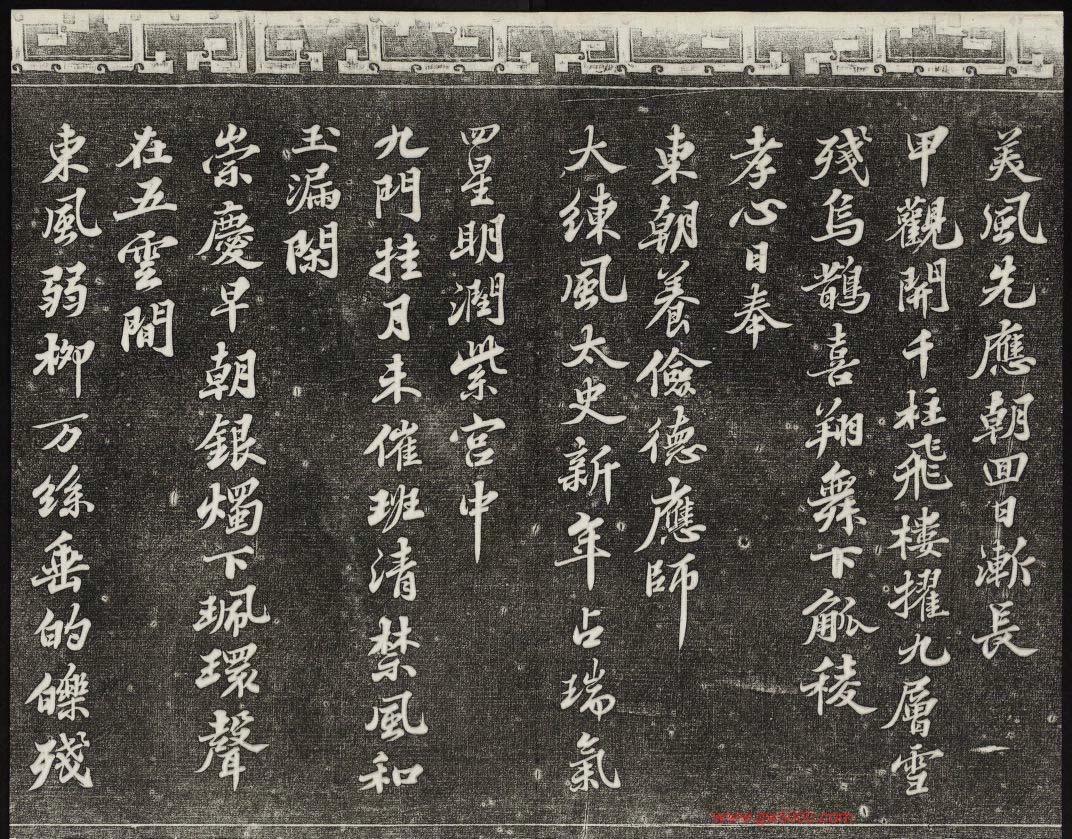 美風先應朝回日漸長
甲觀開千柱飛樓擢九層雪
殘烏鵲喜翔舞下觚稜
孝心日奉
東朝養儉德應師
大練風太史新年占瑞氣
四星明潤紫宮中
九門挂月未催班清禁風和
玉漏閑
崇慶早朝銀燭下珮環聲
在五雲間
東風弱柳万絲垂的皪殘